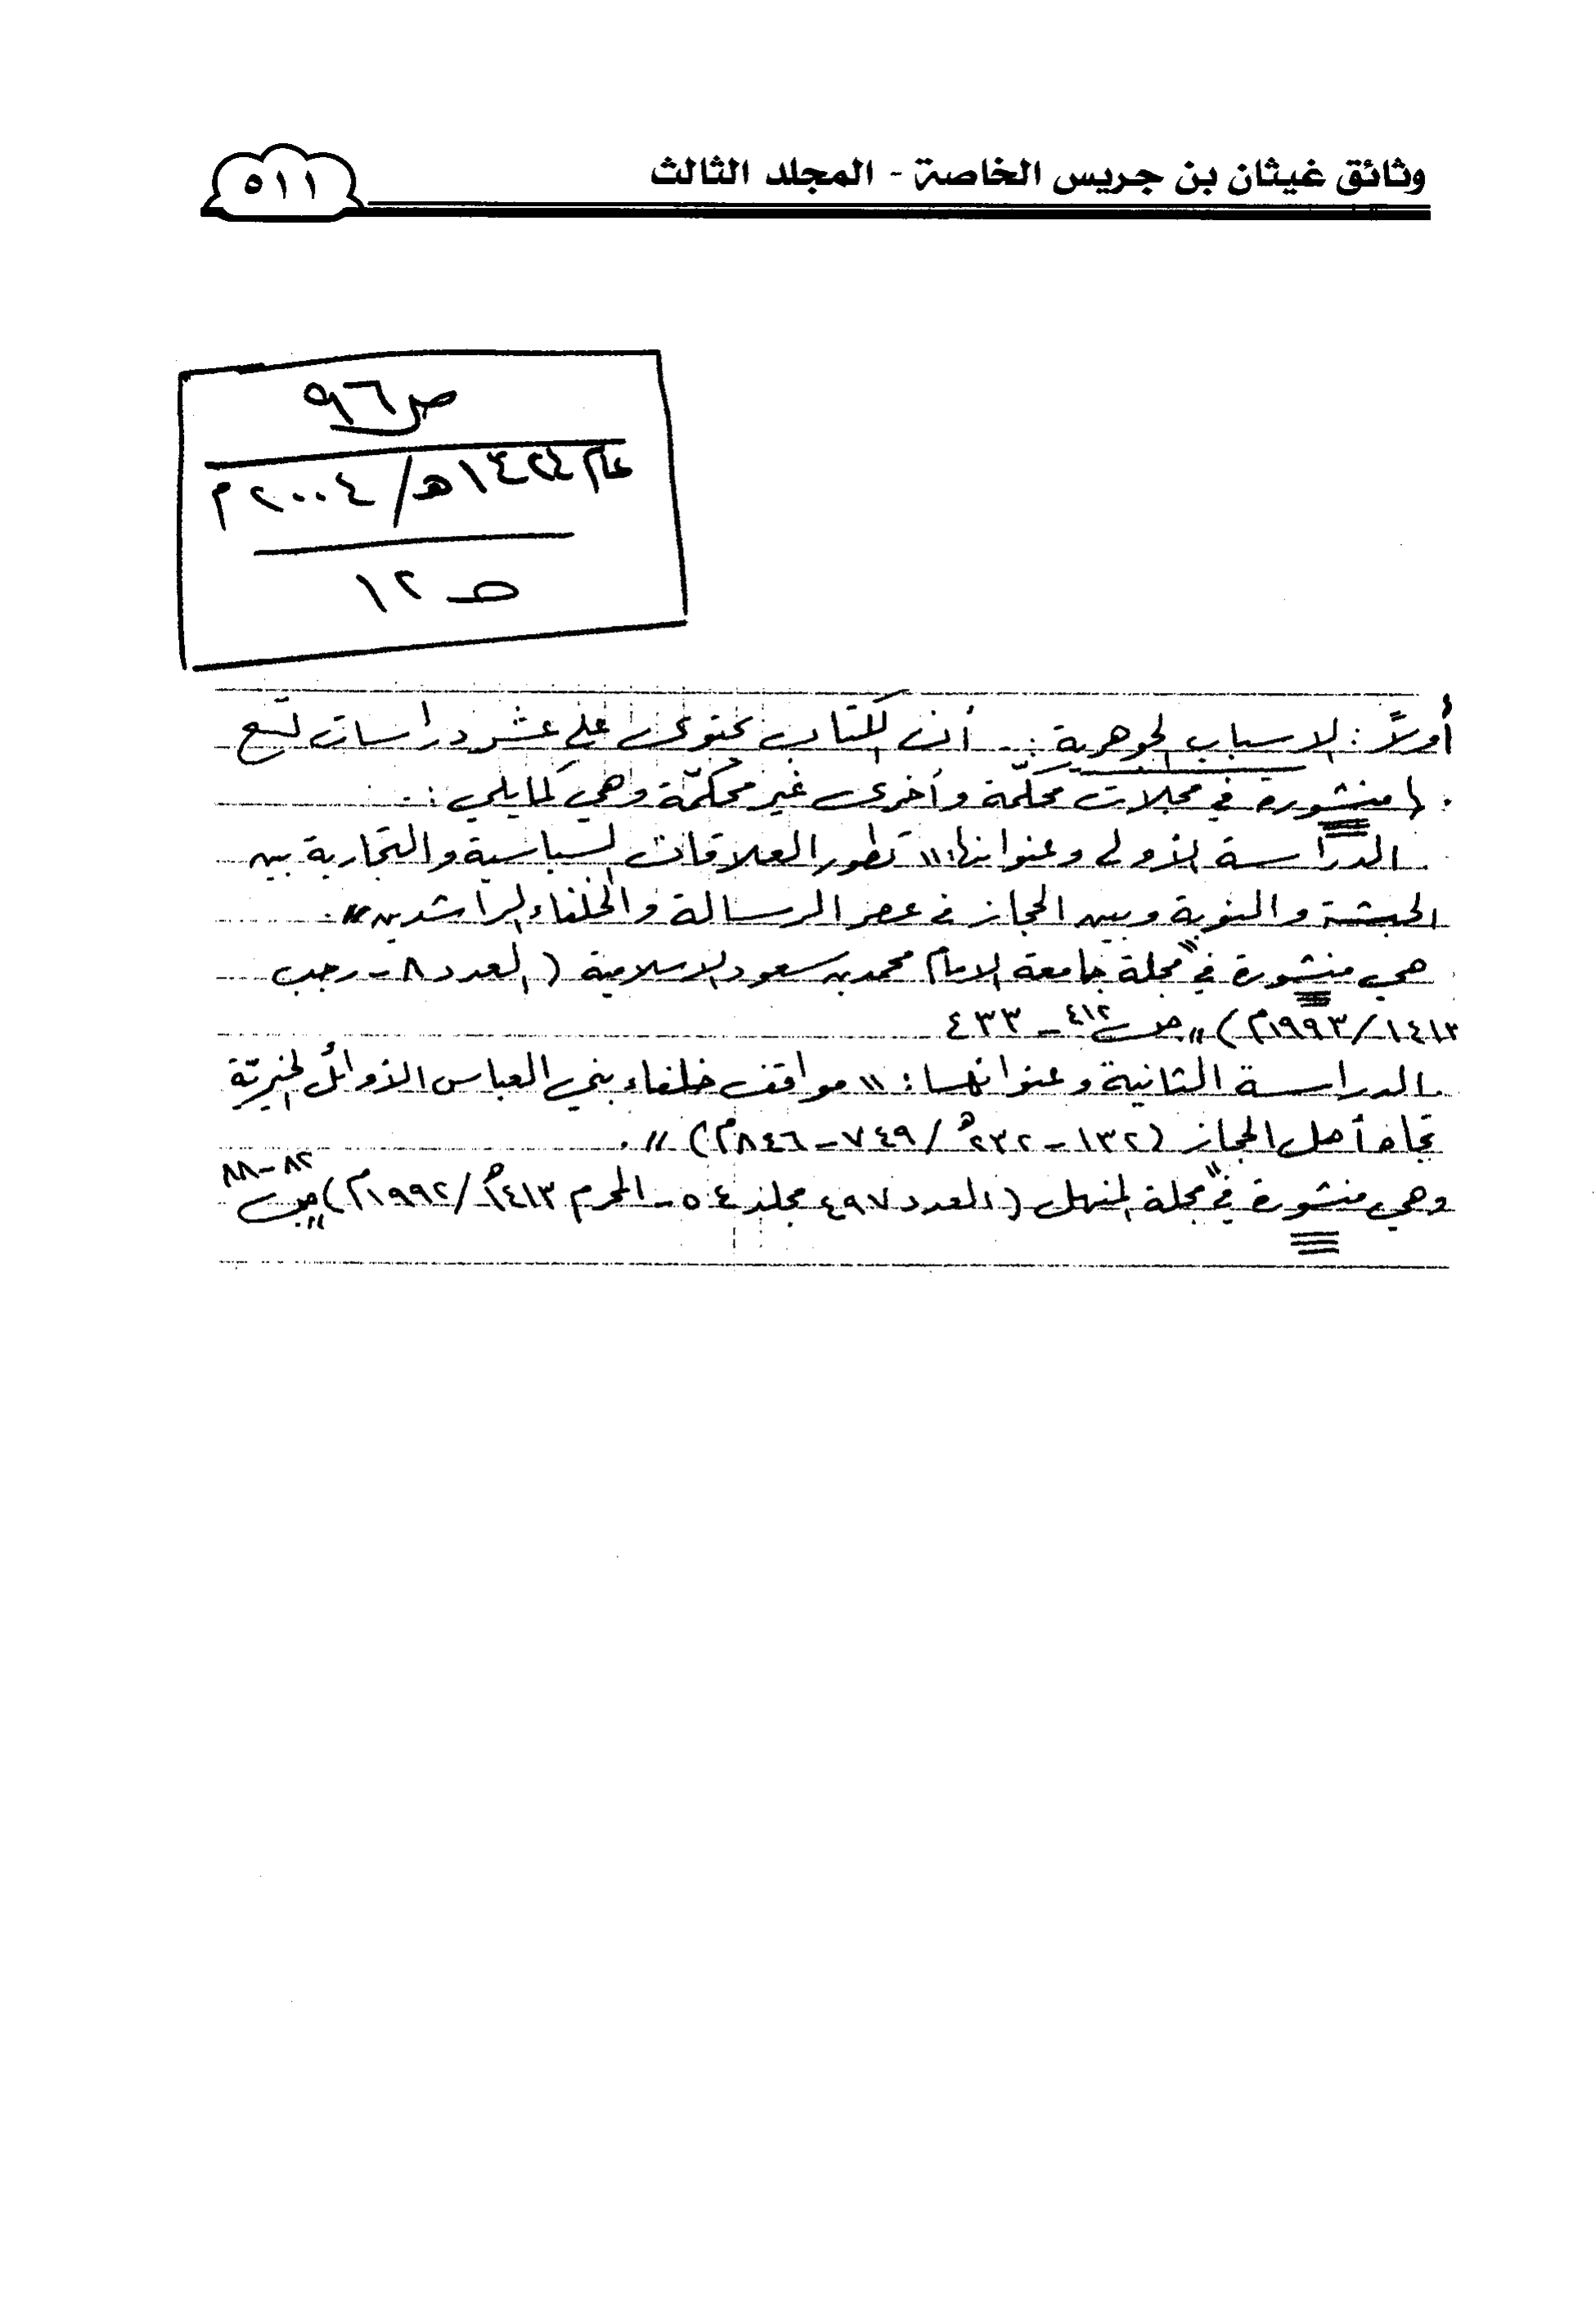 وثائق غيثان بن جريس الخاصة - المجلد الثالث
٥١١
ص٩٦
عام ١٤٢٤هـ/٢٠٠٤م
صـ ١٢
أولاً: الاسباب الجوهرية :. أن الكتاب يحتوي على عشر دراسات تسع
منشورة في مجلات محكّمة وأخرى غير محكمّة وهي كما يلي :.
الدراسة الأولى وعنوانها: " تطور العلاقات السياسية والتجارية بين
الحبشة والنوبة وبين الحجاز في عصر الرسالة والخلفاء الراشدين " .
هي منشورة في " مجلة جامعة الامام محمد بن سعود الاسلامية ( العدد ٨ - رجب
١٤١٣/١٩٩٣م) " ص ٤١٢ - ٤٣٣
الدراسة الثانية وعنوانها : " مواقف خلفاء بني العباس الأوائل الخيريّة
تجاه أهل الحجاز (١٣٢ - ٢٣٢هـ / ٧٤٩ - ٨٤٦م) " .
وهي منشورة في " مجلة المنهل ( العدد ٤٩٧ مجلد ٥٤ - المحرم ١٤١٣هـ / ١٩٩٢م) " ص ٨٢ - ٨٨